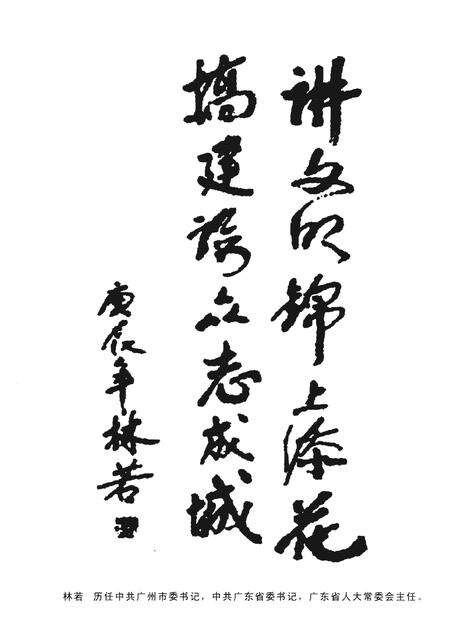 讲文明锦上添花
搞建设众志成城
庚辰年林若
林若 历任中共广州市委书记，中共广东省委书记，广东省人大常委会主任。